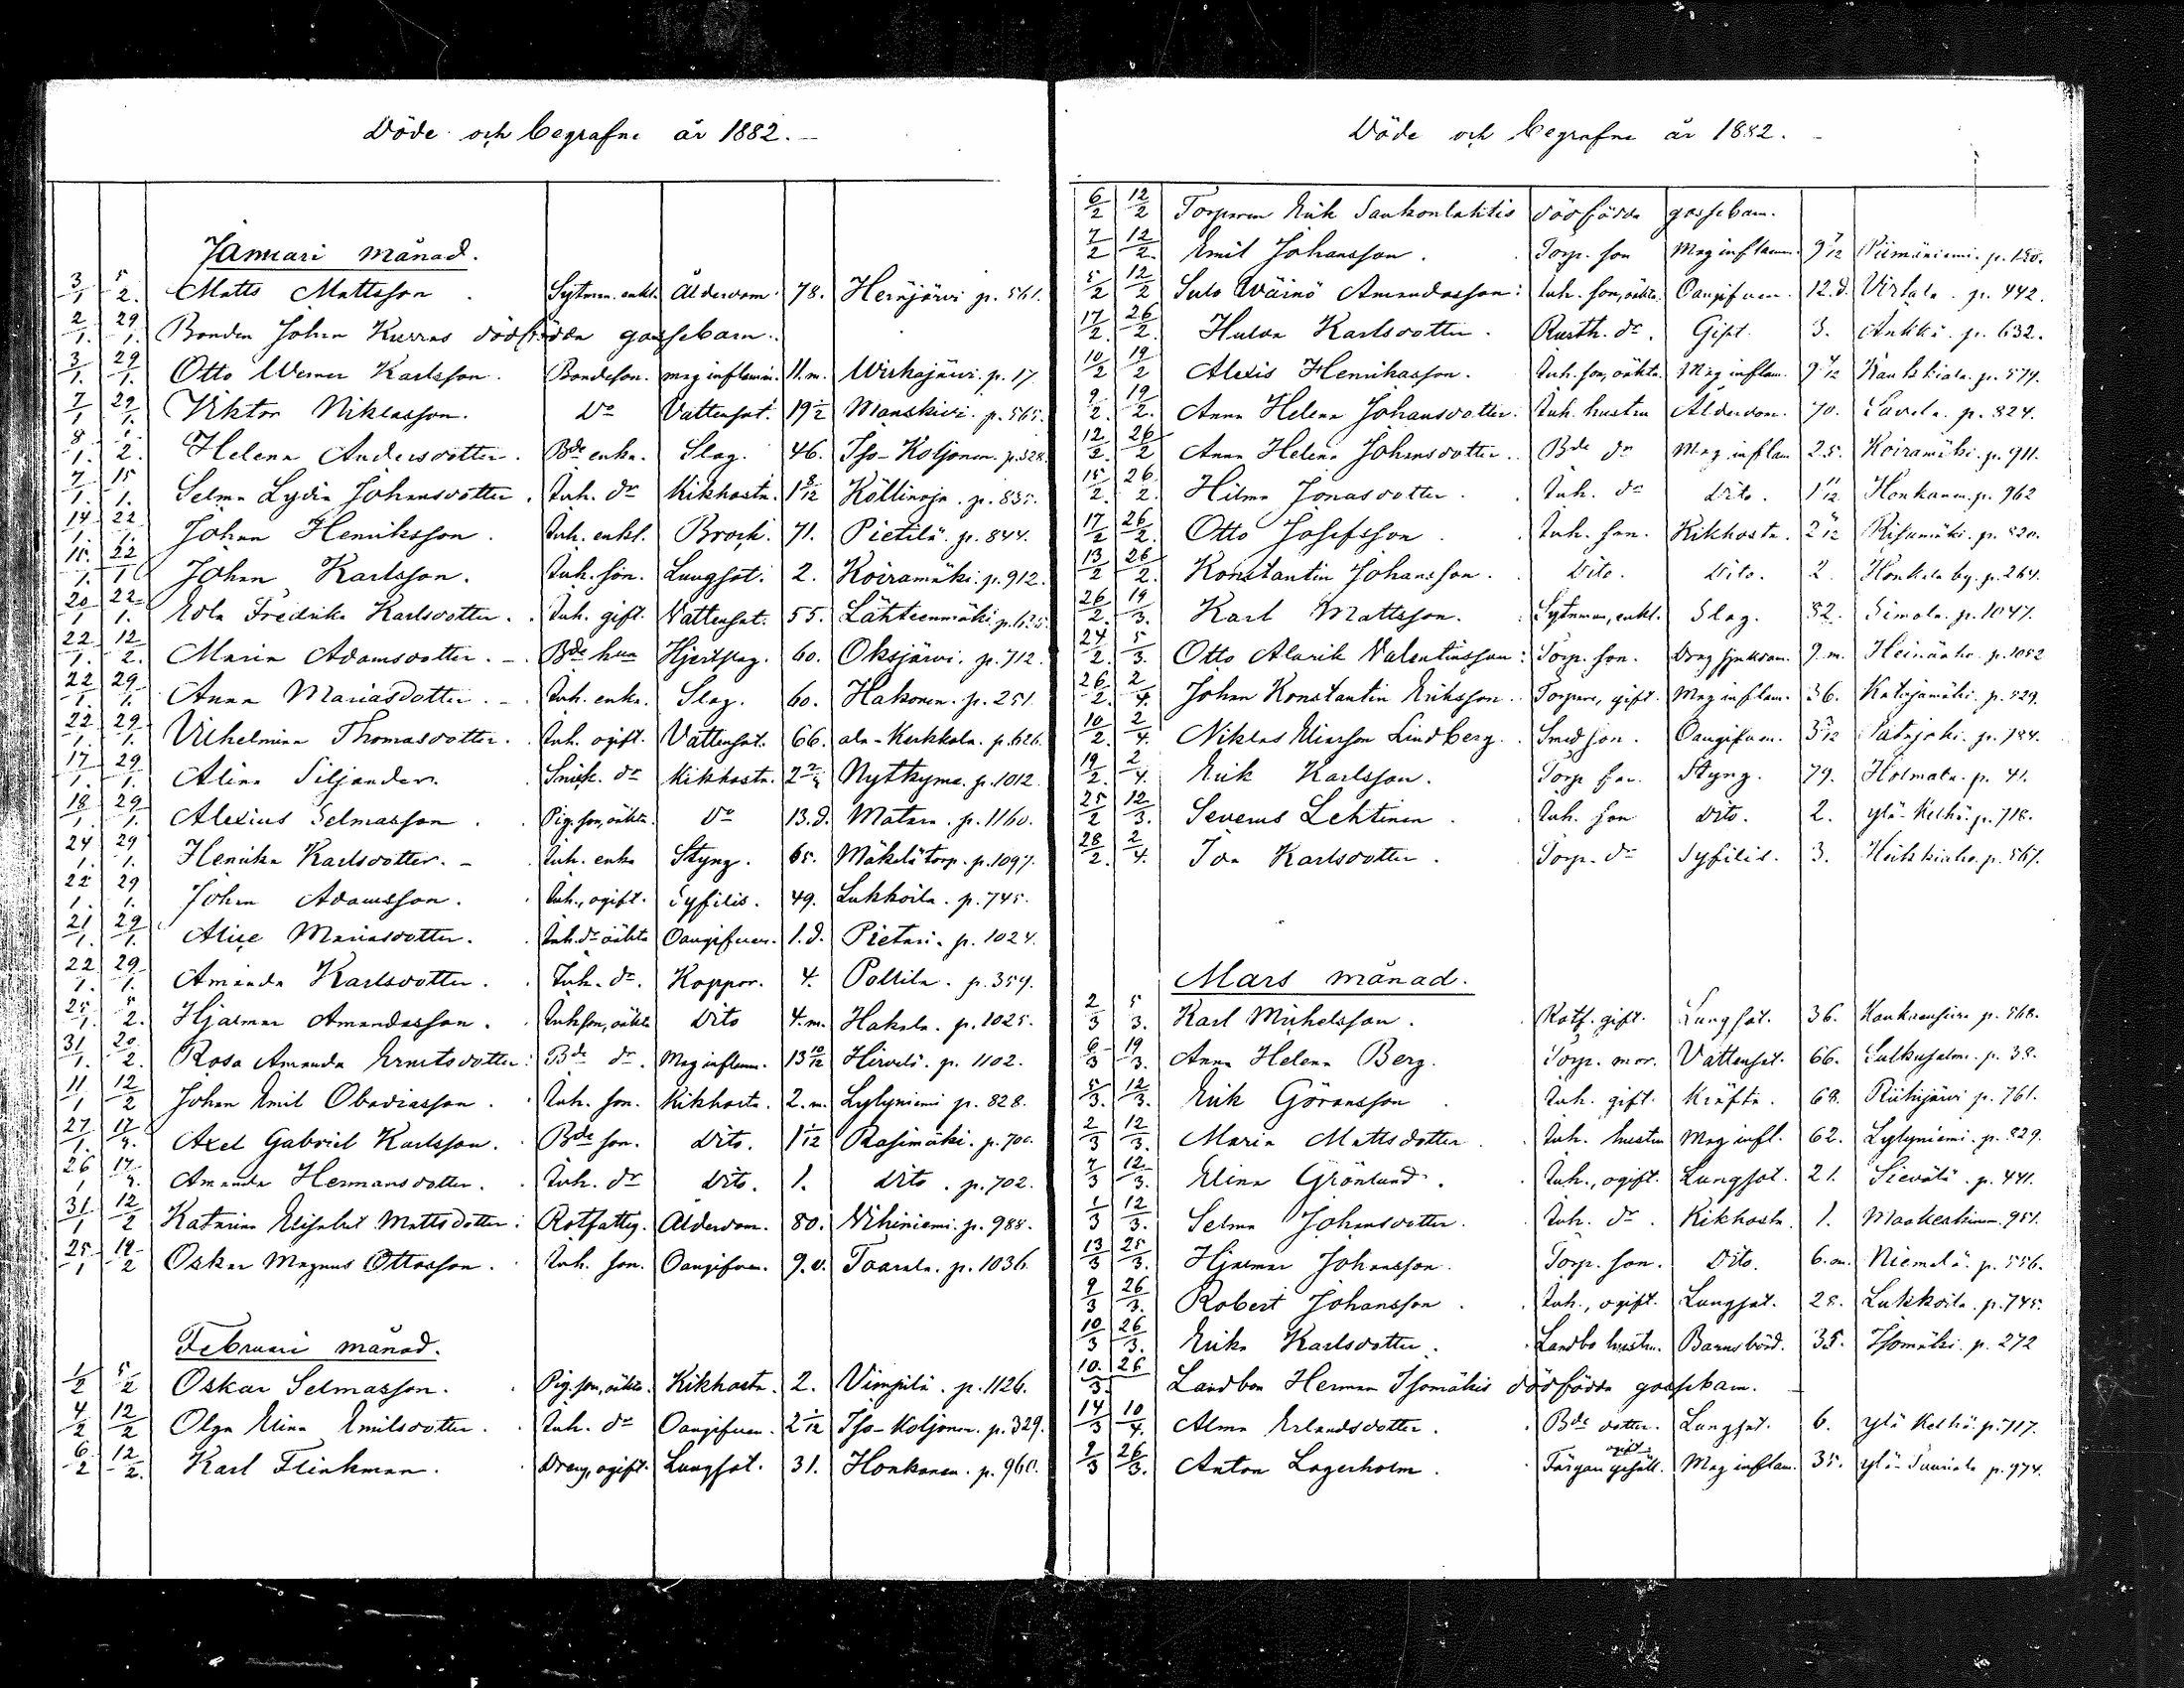 Döde och begrafne år 1882.
Januari månad.
3/1 5/2. Matts Mattsson. Sytman. enkl. Ålderdom. 78. Heinäjärvi p. 561.
2/1. 29/1. Bonden Johan Kurras dödfödda gossebarn.
3/1. 29/1. Otto Werner Karlsson. Bondeson. mag inflamm. 11. m. Wirkajärvi. p. 17.
7/1 29/1. Viktor Niklasson. do Vattensot. 19 1/2 Manskivi. p. 565.
8/1. 2. Helena Andersdotter. Bde enka. Slag. 46. Iso-Koljonen. p. 328.
7/1. 15/1. Selma Lydia Johansdotter. Inh. dr Kikhosta. 1 8/12 Köllinoja. p. 835.
14/1. 22/1. Johan Henriksson. Inh. enkl. Brock. 71. Pietilä. p. 844.
15./1. 22/1 Johan Karlsson. Inh. son. Lungsot. 2. Koiramäki. p. 912.
20/1 22/1. Eva Fredrika Karlsdotter. Inh. gift. Vattensot. 55. Lähteenmäki p. 625.
22/1. 12/2. Maria Adamsdotter. Bde hua Hjertslag. 60. Oksjärvi. p. 712.
22/1. 29/1. Anna Mariasdotter. Inh. enka. Slag. 60. Hakonen. p. 251.
22/1. 29/1. Vilhelmina Thomasdotter. Inh. ogift. Vattensot. 66. ala-Kerkkola. p. 626.
17/1. 29/1. Alina Siljander. Snick. dr Kikhosta. 2 Nytkyma. p. 1012.
18/1. 29/1. Alexius Selmasson. Pig. son, oäkta. do 13. d. Matara. p. 1160.
24/1. 29/1. Henrika Karlsdotter. Inh. enka Styng. 65. Mäkelä torp. p. 1097.
22/1. 29/1. Johan Adamsson. Inh., ogift. Syfilis. 49. Lukkoila. p. 745.
21/1. 29/1. Alice Mariasdotter. Inh. dr oäkta Oangifven. 1. d. Pietari. p. 1024.
22/1. 29/1. Amanda Karlsdotter. Inh. dr. Koppor. 4. Poltila. p. 359.
25/1. 5/2. Hjalmar Amandasson. Inh son, oäkta Dito 4. m. Hakala. p. 1025.
31/1. 20/2. Rosa Amanda Ernstsdotter: Bde dr. Mag inflamm. 13 10/12 Hirvelä. p. 1102.
11/1 12/2 Johan Emil Obadiasson. Inh. son. Kikhosta. 2. m. Lylyniemi p. 828.
27/1. 17/4. Axel Gabriel Karlsson. Bde son. Dito. 1 1/12 Rasimäki. p. 700.
26/1 17/4. Amanda Hermansdotter. Inh. dr Dito. 1. Dito. p. 702.
31/1 12/2 Katarina Elisabet Mattsdotter: Rotfattig. Ålderdom. 80. Vihiniemi. p. 988.
25/1 19/2 Oskar Magnus Ottosson. Inh. son. Oangifven. 9. d. Taarala. p. 1036.
Februari månad.
1/2 5/2 Oskar Selmasson. Pig. son, oäkta. Kikhosta. 2. Vimpilä. p. 1126.
4/2 12/2 Olga Elina Emilsdotter. Inh. dr Oangifven. 2 1/12 Iso-Koljonen. p. 329.
6/2 12/2. Karl Flinkman. Dreng, ogift. Lungsot. 31. Honkanen. p. 960.
Döde och begrafne år 1882.
6/2 12/2 Torparen Erik Saukonlahtis dödfödda gossebarn.
7/2 12/2. Emil Johansson. Torp. son Mag inflamm. 9 7/12 Piimäniemi. p. 150.
5/2 12/2 Sulo Wäinö Amandasson: Inh. son, oäkta. Oangifven. 12. d. Virtala. p. 442.
17/2. 26/2. Hulda Karlsdotter. Rusth. dr. Gift. 3. Anttila. p. 632.
10/2 19/2 Alexis Henrikasson. Inh. son, oäkta. Mag inflam. 9 4/12 p. 579.
9/2. 19/2. Anna Helena Johansdotter. Inh. hustru Ålderdom. 70. Savela. p. 824.
12/2. 26/2 Anna Helena Johansdotter. Bde dr Mag inflam 25. Koiramäki. p. 911.
15/2. 26/2. Hilma Jonasdotter. Inh. dr Dito. 1 11/12 Honkanen. p. 962
17/2 26/2. Otto Josefsson. Inh. son. Kikhosta. 2 Risumäki. p. 520.
13/2 26/2. Konstantin Johansson. Dito. Dito. 2. Honkola by. p. 264.
26/2. 19/3. Karl Mattsson. Sytnman, enkl. Slag. 82. Simola. p. 1047.
24/2. 5/3. Otto Alarik Valentinsson: Torp. son. 9. m. Heinäaho. p. 1052
26/2. 2/4. Johan Konstantin Eriksson. Torpare, gift. Mag inflam. 36. Katajamäki. p. 829.
10/2. 2/4. Niklas Eliasson Lindberg. Smed son. Oangifven. 3 Patajoki. p. 784.
19/2. 2/4. Erik Karlsson. Torp far. Styng. 79. Holmala. p. 41.
25/2 12/3. Severus Lehtinen. Inh. son Dito. 2. ylä-Kelhä. p. 718.
28/2. 2/4. Ida Karlsdotter. Torp. dr Syfilis. 3. p. 567.
Mars månad.
2/3 5/3. Karl Michelsson. Rotf. gift. Lungsot. 36. p. 568.
6/3 19/3. Anna Helena Berg. Torp. mor. Vattensot. 66. Sulkusalmi. p. 38.
5/3. 12/3. Erik Göransson. Inh. gift. Kräfta. 68. Riihijärvi p. 761.
2/3 12/3. Maria Mattsdotter. Inh. hustru Mag infl. 62. Lylyniemi. p. 829.
7/3 12/3. Elina Grönlund. Inh., ogift. Lungsot. 21. Sievälä. p. 441.
1/3 12/3. Selma Johansdotter. Inh. dr. Kikhosta. 1. Maakeskinen. 951.
13/3 25/3. Hjalmar Johansson. Torp. son. Dito. 6. m. Niemelä. p. 556.
9/3 26/3. Robert Johansson. Inh., ogift. Lungsot. 28. Lukkoila. p. 745.
10/3 26/3. Erika Karlsdotter. Landbo hustru. Barnsbörd. 35. Isomäki. p. 272
10./3. 26 Landbon Herman Isomäkis dödfödda gossebarn.
14/3 10/4. Alma Erlandsdotter. Bde dotter. Lungsot. 6. ylä Kelhä. p. 717.
9/3 26/3. Anton Lagerholm. Färgare gesäll. ogift. Mag inflam. 35. ylä-Tuurala p. 974.